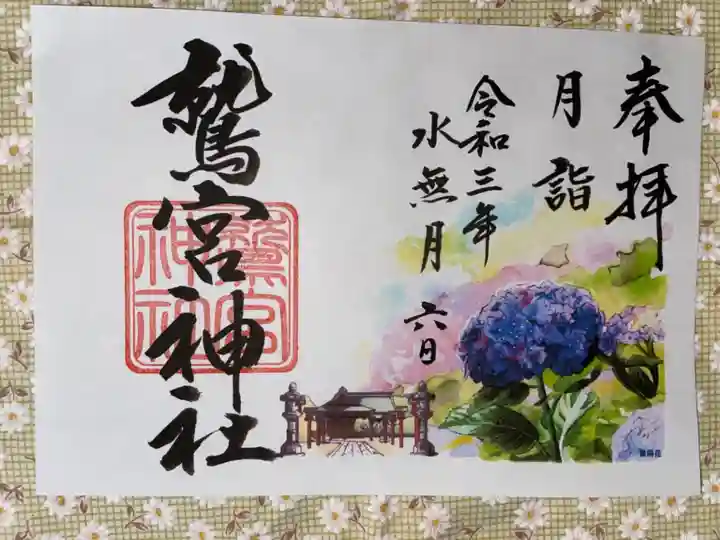 奉拝
月詣
令和三年
水無月 六日
鷲宮神社
鷲宮
神社
紫陽花